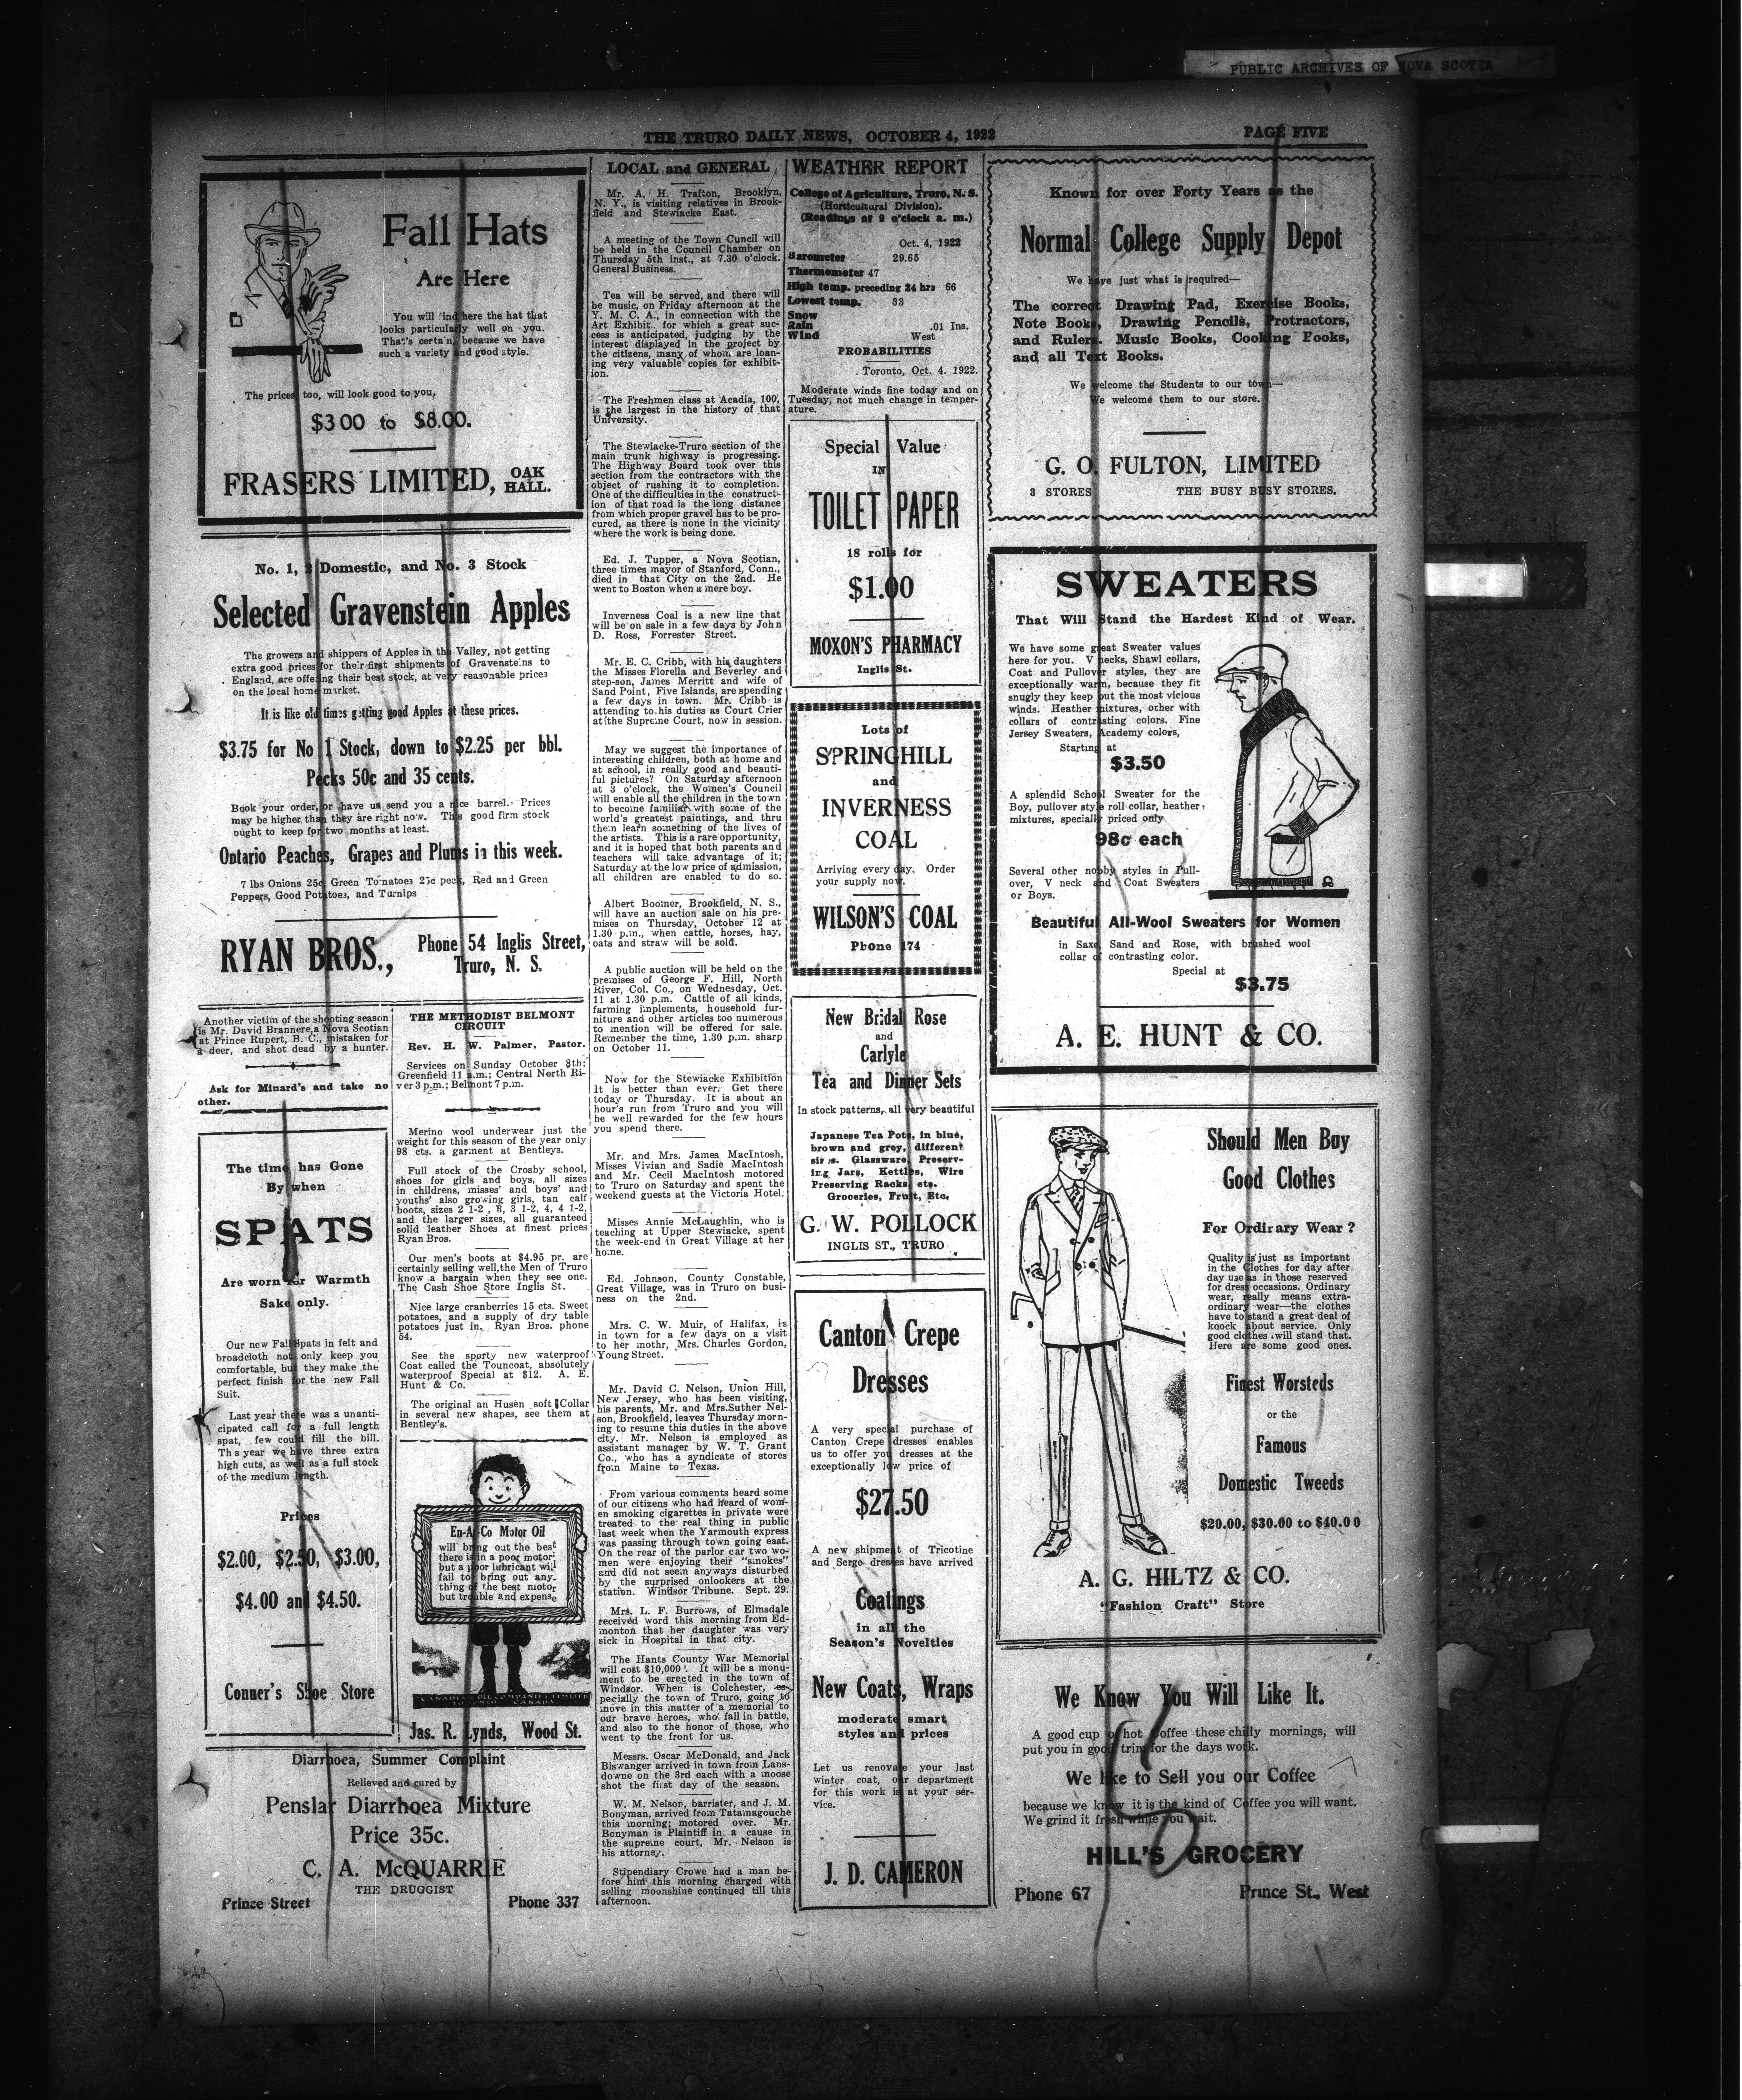 PUBLIC ARCHIVES OF NOVA SCOTIA
THE TRURO DAILY NEWS, OCTOBER 4, 1922
PAGE FIVE
Fall Hats
Are Here
You will find here the hat that
looks particularly well on you.
That's certain, because we have
such a variety and good style.
The prices too, will look good to you,
$3 00 to $8.00.
FRASERS LIMITED, OAK
HALL.
No. 1, 2 Domestic, and No. 3 Stock
Selected Gravenstein Apples
The growers and shippers of Apples in the Valley, not getting
extra good prices for their first shipments of Gravensteins to
England, are offering their best stock, at very reasonable prices
on the local home market.
It is like old times getting good Apples at these prices.
$3.75 for No 1 Stock, down to $2.25 per bbl.
Pecks 50c and 35 cents.
Book your order, or have us send you a nice barrel. Prices
may be higher than they are right now. This good firm stock
ought to keep for two months at least.
Ontario Peaches, Grapes and Plums in this week.
7 lbs Onions 25c, Green Tomatoes 25c peck, Red and Green
Peppers, Good Potatoes, and Turnips
RYAN BROS., Phone 54 Inglis Street,
Truro, N. S.
Another victim of the shooting season
is Mr. David Brannere,a Nova Scotian
at Prince Rupert, B. C., mistaken for
a deer, and shot dead by a hunter.
Ask for Minard's and take no
other.
The time has Gone
By when
SPATS
Are worn for Warmth
Sake only.
Our new Fall Spats in felt and
broadcloth not only keep you
comfortable, but they make the
perfect finish for the new Fall
Suit.
Last year there was a unanti-
cipated call for a full length
spat, few could fill the bill.
Ths year we have three extra
high cuts, as well as a full stock
of the medium length.
Prices
$2.00, $2.50, $3.00,
$4.00 and $4.50.
Conner's Shoe Store
THE METHODIST BELMONT
CIRCUIT
Rev. H. W. Palmer, Pastor.
Services on Sunday October 8th:
Greenfield 11 a.m.; Central North Ri-
ver 3 p.m.; Belmont 7 p.m.
Merino wool underwear just the
weight for this season of the year only
98 cts. a garment at Bentleys.
Full stock of the Crosby school,
shoes for girls and boys, all sizes
in childrens, misses' and boys' and
youths' also growing girls, tan calf
boots, sizes 2 1-2 , 3, 3 1-2, 4, 4 1-2,
and the larger sizes, all guaranteed
solid leather Shoes at finest prices
Ryan Bros.
Our men's boots at $4.95 pr. are
certainly selling well,the Men of Truro
know a bargain when they see one.
The Cash Shoe Store Inglis St.
Nice large cranberries 15 cts. Sweet
potatoes, and a supply of dry table
potatoes just in. Ryan Bros. phone
54.
See the sporty new waterproof
Coat called the Touncoat, absolutely
waterproof Special at $12. A. E.
Hunt & Co.
The original an Husen soft Collar
in several new shapes, see them at
Bentley's.
En-Ar-Co Motor Oil
will bring out the best
there is in a poor motor;
but a poor lubricant will
fail to bring out any-
thing of the best motor
but trouble and expense
CANADIAN OIL COMPANIES LIMITED
TORONTO CANADA
Jas. R. Lynds, Wood St.
Diarrhoea, Summer Complaint
Relieved and cured by
Penslar Diarrhoea Mixture
Price 35c.
C. A. McQUARRIE
THE DRUGGIST
Prince Street
Phone 337
LOCAL and GENERAL
Mr. A. H. Trafton, Brooklyn,
N. Y., is visiting relatives in Brook-
field and Stewiacke East.
A meeting of the Town Cuncil will
be held in the Council Chamber on
Thursday 5th inst., at 7.30 o'clock.
General Business.
Tea will be served, and there will
be music, on Friday afternoon at the
Y. M. C. A., in connection with the
Art Exhibit for which a great suc-
cess is anticipated, judging by the
interest displayed in the project by
the citizens, many of whom are loan-
ing very valuable copies for exhibit-
ion.
The Freshmen class at Acadia, 100,
is the largest in the history of that
University.
The Stewiacke-Truro section of the
main trunk highway is progressing.
The Highway Board took over this
section from the contractors with the
object of rushing it to completion.
One of the difficulties in the construct-
ion of that road is the long distance
from which proper gravel has to be pro-
cured, as there is none in the vicinity
where the work is being done.
Ed. J. Tupper, a Nova Scotian,
three times mayor of Stanford, Conn.,
died in that City on the 2nd. He
went to Boston when a mere boy.
Inverness Coal is a new line that
will be on sale in a few days by John
D. Ross, Forrester Street.
Mr. E. C. Cribb, with his daughters
the Misses Florella and Beverley and
step-son, James Merritt and wife of
Sand Point, Five Islands, are spending
a few days in town. Mr. Cribb is
attending to his duties as Court Crier
at the Supreme Court, now in session.
May we suggest the importance of
interesting children, both at home and
at school, in really good and beauti-
ful pictures? On Saturday afternoon
at 3 o'clock, the Women's Council
will enable all the children in the town
to become familiar with some of the
world's greatest paintings, and thru
them learn something of the lives of
the artists. This is a rare opportunity,
and it is hoped that both parents and
teachers will take advantage of it;
Saturday at the low price of admission,
all children are enabled to do so.
Albert Boomer, Brookfield, N. S.,
will have an auction sale on his pre-
mises on Thursday, October 12 at
1.30 p.m., when cattle, horses, hay,
oats and straw will be sold.
A public auction will be held on the
premises of George F. Hill, North
River, Col. Co., on Wednesday, Oct.
11 at 1.30 p.m. Cattle of all kinds,
farming implements, household fur-
niture and other articles too numerous
to mention will be offered for sale.
Remember the time, 1.30 p.m. sharp
on October 11.
Now for the Stewiacke Exhibition
It is better than ever. Get there
today or Thursday. It is about an
hour's run from Truro and you will
be well rewarded for the few hours
you spend there.
Mr. and Mrs. James MacIntosh,
Misses Vivian and Sadie MacIntosh
and Mr. Cecil MacIntosh motored
to Truro on Saturday and spent the
weekend guests at the Victoria Hotel.
Misses Annie McLaughlin, who is
teaching at Upper Stewiacke, spent
the week-end in Great Village at her
home.
Ed. Johnson, County Constable,
Great Village, was in Truro on busi-
ness on the 2nd.
Mrs. C. W. Muir, of Halifax, is
in town for a few days on a visit
to her mothr, Mrs. Charles Gordon,
Young Street.
Mr. David C. Nelson, Union Hill,
New Jersey, who has been visiting,
his parents, Mr. and Mrs.Suther Nel-
son, Brookfield, leaves Thursday morn-
ing to resume this duties in the above
city. Mr. Nelson is employed as
assistant manager by W. T. Grant
Co., who has a syndicate of stores
from Maine to Texas.
From various comments heard some
of our citizens who had heard of wom-
en smoking cigarettes in private were
treated to the real thing in public
last week when the Yarmouth express
was passing through town going east.
On the rear of the parlor car two wo-
men were enjoying their "smokes"
and did not seem anyways disturbed
by the surprised onlookers at the
station. Windsor Tribune. Sept. 29.
Mrs. L. F. Burrows, of Elmsdale
received word this morning from Ed-
monton that her daughter was very
sick in Hospital in that city.
The Hants County War Memorial
will cost $10,000. It will be a monu-
ment to be erected in the town of
Windsor. When is Colchester, es-
pecially the town of Truro, going to
move in this matter of a memorial to
our brave heroes, who fall in battle,
and also to the honor of those, who
went to the front for us.
Messrs. Oscar McDonald, and Jack
Biswanger arrived in town from Lans-
downe on the 3rd each with a moose
shot the first day of the season.
W. M. Nelson, barrister, and J. M.
Bonyman, arrived from Tatamagouche
this morning; motored over. Mr.
Bonyman is Plaintiff in a cause in
the supreme court, Mr. Nelson is
his attorney.
Stipendiary Crowe had a man be-
fore him this morning charged with
selling moonshine continued till this
afternoon.
WEATHER REPORT
College of Agriculture, Truro, N. S.
(Horticultural Division).
(Readings at 9 o'clock a. m.)
Oct. 4, 1922
Barometer 29.65
Thermometer 47
High temp. preceding 24 hrs 66
Lowest temp. 33
Snow
Rain .01 Ins.
Wind West
PROBABILITIES
Toronto, Oct. 4. 1922.
Moderate winds fine today and on
Tuesday, not much change in temper-
ature.
Special Value
IN
TOILET PAPER
18 rolls for
$1.00
MOXON'S PHARMACY
Inglis St.
Lots of
SPRINGHILL
and
INVERNESS
COAL
Arriving every day. Order
your supply now.
WILSON'S COAL
Phone 174
New Bridal Rose
and
Carlyle
Tea and Dinner Sets
In stock patterns, all very beautiful
Japanese Tea Pots, in blue,
brown and grey, different
sizes. Glassware, Preserv-
ing Jars, Kettles, Wire
Preserving Racks, etc.
Groceries, Fruit, Etc.
G. W. POLLOCK
INGLIS ST., TRURO
Canton Crepe
Dresses
A very special purchase of
Canton Crepe dresses enables
us to offer you dresses at the
exceptionally low price of
$27.50
A new shipment of Tricotine
and Serge dresses have arrived
Coatings
in all the
Season's Novelties
New Coats, Wraps
moderate smart
styles and prices
Let us renovate your last
winter coat, our department
for this work is at your ser-
vice.
J. D. CAMERON
Known for over Forty Years as the
Normal College Supply Depot
We have just what is required—
The correct Drawing Pad, Exercise Books,
Note Books, Drawing Pencils, Protractors,
and Rulers. Music Books, Cooking Books,
and all Text Books.
We welcome the Students to our town—
We welcome them to our store.
G. O. FULTON, LIMITED
3 STORES
THE BUSY BUSY STORES.
SWEATERS
That Will Stand the Hardest Kind of Wear.
We have some great Sweater values
here for you. V necks, Shawl collars,
Coat and Pullover styles, they are
exceptionally warm, because they fit
snugly they keep out the most vicious
winds. Heather mixtures, other with
collars of contrasting colors. Fine
Jersey Sweaters, Academy colors,
Starting at
$3.50
A splendid School Sweater for the
Boy, pullover style roll collar, heather
mixtures, specially priced only
98c each
Several other nobby styles in Pull-
over, V neck and Coat Sweaters
or Boys.
Beautiful All-Wool Sweaters for Women
in Saxe, Sand and Rose, with brushed wool
collar of contrasting color.
Special at
$3.75
A. E. HUNT & CO.
Should Men Buy
Good Clothes
For Ordinary Wear ?
Quality is just as important
in the Clothes for day after
day use as in those reserved
for dress occasions. Ordinary
wear, really means extra-
ordinary wear—the clothes
have to stand a great deal of
knock about service. Only
good clothes will stand that.
Here are some good ones.
Finest Worsteds
or the
Famous
Domestic Tweeds
$20.00, $30.00 to $40.00
A. G. HILTZ & CO.
"Fashion Craft" Store
We Know You Will Like It.
A good cup of hot Coffee these chilly mornings, will
put you in good trim for the days work.
We like to Sell you our Coffee
because we know it is the kind of Coffee you will want.
We grind it fresh while you wait.
HILL'S GROCERY
Phone 67
Prince St., West